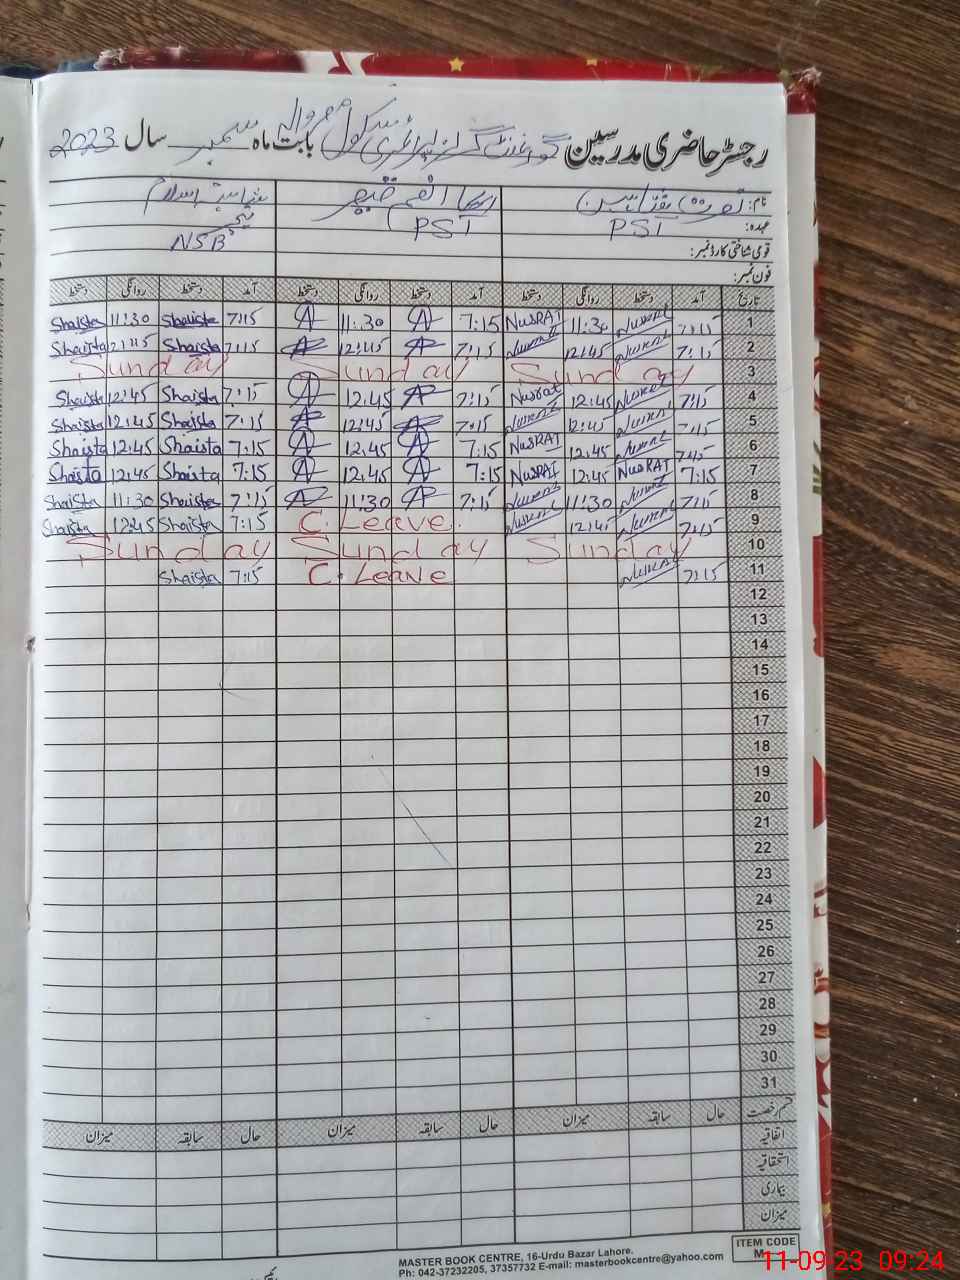 رجسٹر حاضری مدرسین گورنمنٹ گرلز پرائمری سکول بابت ماہ ستمبر سال 2023
نام:
عہدہ: PST PST NSB
قومی شناختی کارڈ نمبر:
فون نمبر:
تاریخ آمد دستخط روانگی دستخط آمد دستخط روانگی دستخط آمد دستخط روانگی دستخط
1 7:15 Nusrat 11:30 NUSRAT 7:15 11:30 7:15 Shaista 11:30 Shaista
2 7:15 Nusrat 12:45 Nusrat 7:15 12:45 7:15 Shaista Shaista
3 Sunday Sunday Sunday
4 7:15 Nusrat 12:45 Nusrat 7:15 12:45 7:15 Shaista 12:45 Shaista
5 7:15 Nusrat 12:45 Nusrat 7:15 12:45 7:15 Shaista 12:45 Shaista
6 7:15 Nusrat 12:45 NUSRAT 7:15 12:45 7:15 Shaista 12:45 Shaista
7 7:15 NUSRAT 12:45 NUSRAT 7:15 12:45 7:15 Shaista 12:45 Shaista
8 7:15 Nusrat 11:30 Nusrat 7:15 11:30 7:15 Shaista 11:30 Shaista
9 7:15 Nusrat 12:45 Nusrat C. Leave. 7:15 Shaista 12:45 Shaista
10 Sunday Sunday Sunday
11 7:15 Nusrat C. Leave 7:15 Shaista
12
13
14
15
16
17
18
19
20
21
22
23
24
25
26
27
28
29
30
31
قسم رخصت حال سابقہ میزان حال سابقہ میزان حال سابقہ میزان
اتفاقیہ
استحقاقیہ
بیماری
میزان
MASTER BOOK CENTRE, 16-Urdu Bazar Lahore.
Ph: 042-37232205, 37357732 E-mail: masterbookcentre@yahoo.com
ITEM CODE
11-09-23 09:24